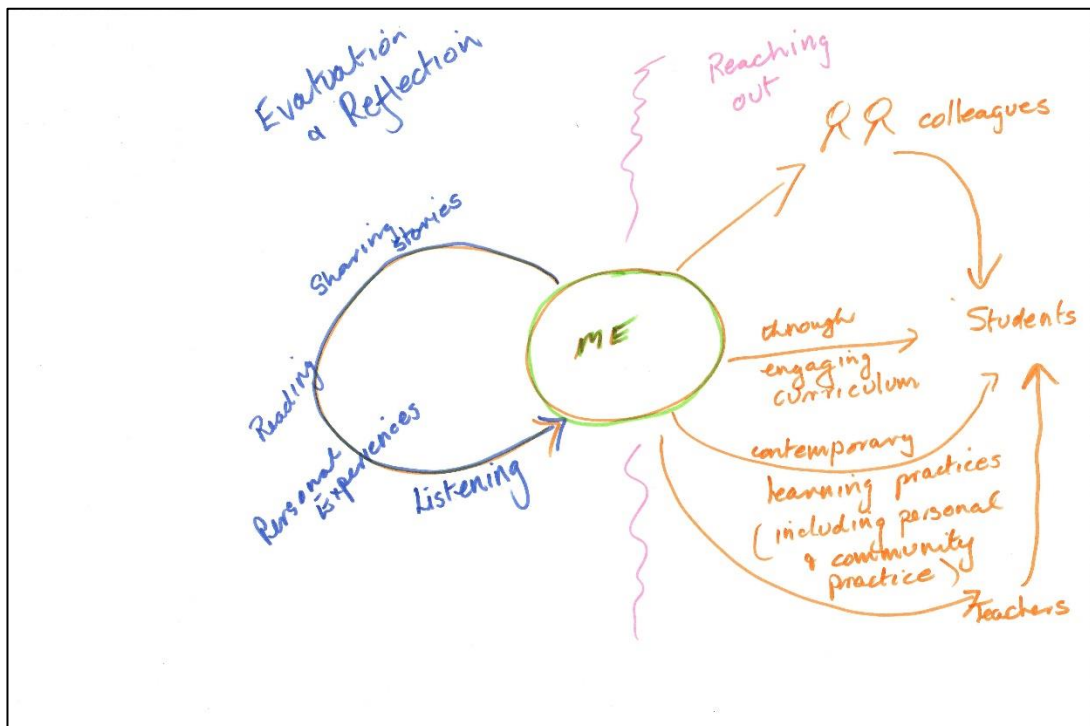 Evaluation
& Reflection
Sharing
stories
Reading
Personal
Experiences
Listening
ME
Reaching
out
colleagues
Students
through
engaging
curriculum
contemporary
learning practices
(including personal
& community
practice)
Teachers